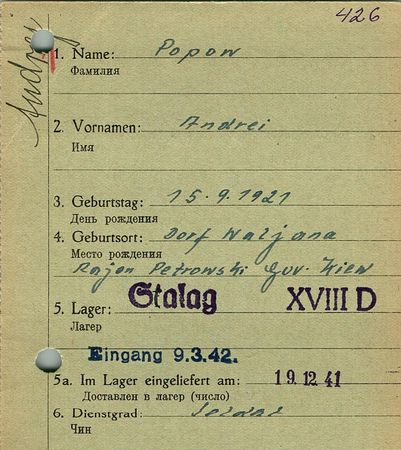 426
Andrej
1. Name: Popow
Фамилия
2. Vornamen: Andrei
Имя
3. Geburtstag: 15.9.1921
День рождения
4. Geburtsort: Dorf Waljana
Место рождения
Rajon Petrowski Guv. Kiew
5. Lager: Stalag XVIII D
Лагер
Eingang 9.3.42.
5a. Im Lager eingeliefert am: 19.12.41
Доставлен в лагер (число)
6. Dienstgrad: Soldat
Чин